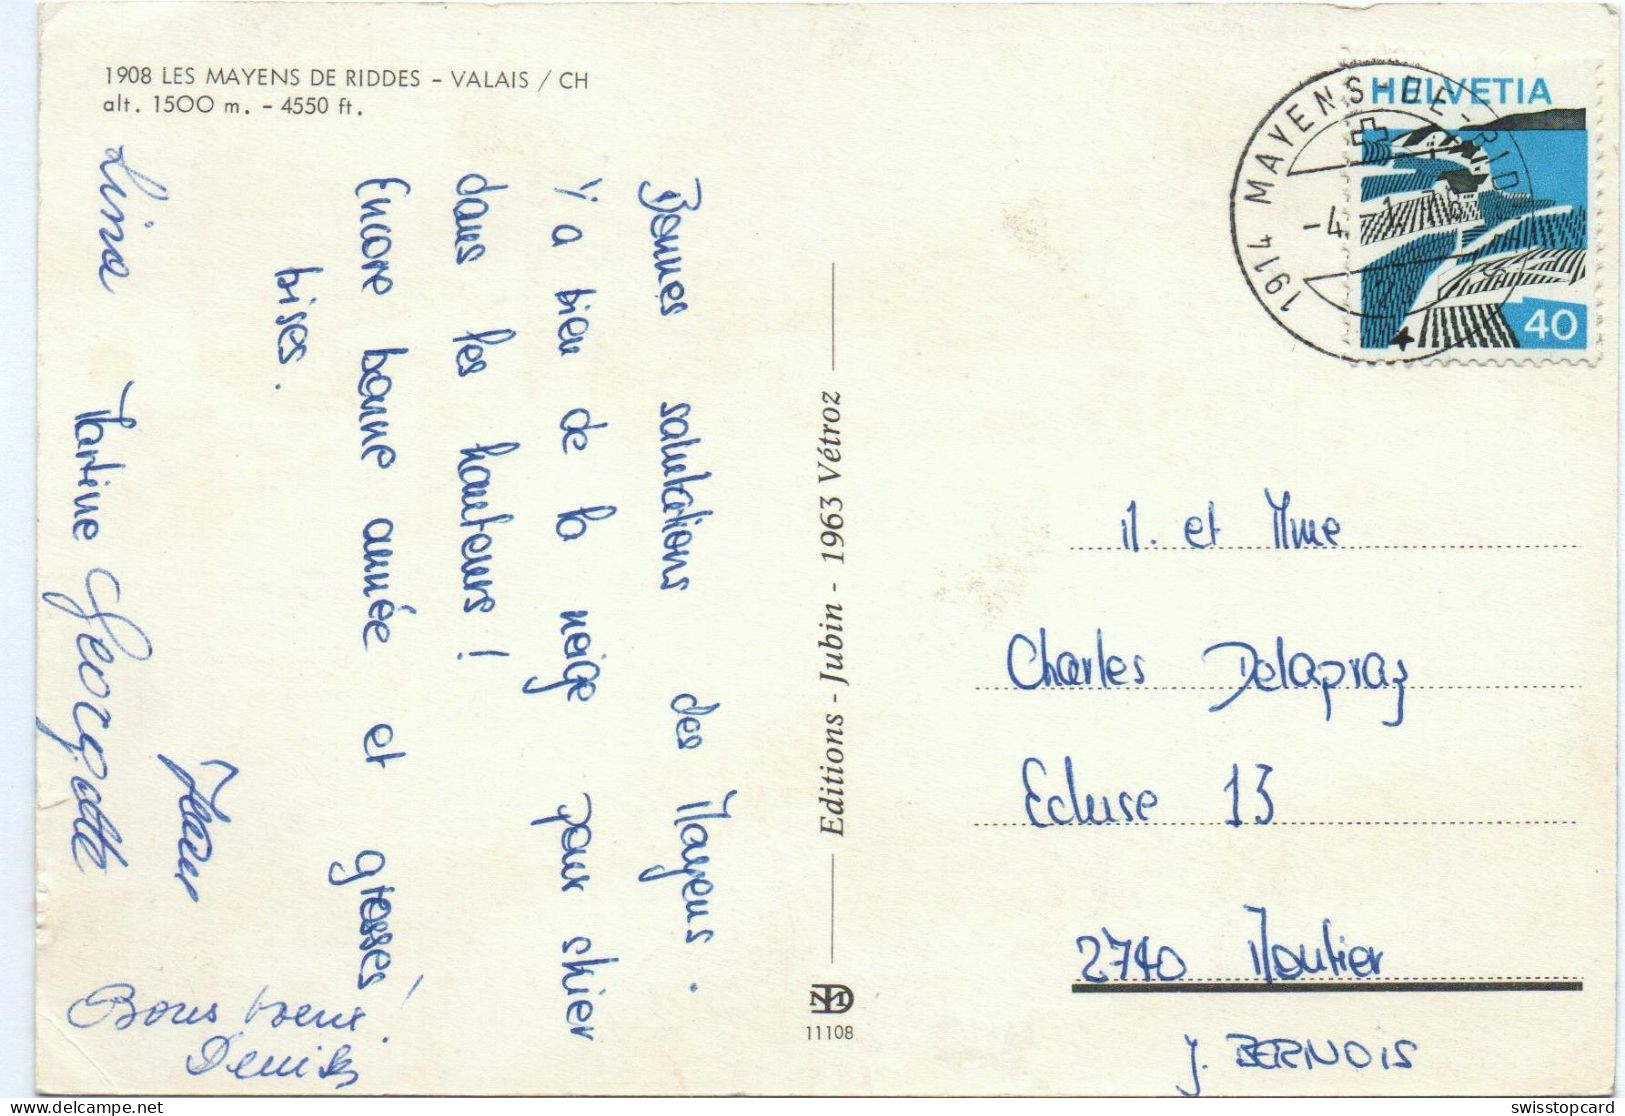 1908 LES MAYENS DE RIDDES – VALAIS / CH
alt. 1500 m. - 4550 ft.
Bonnes salutations des Mayens.
Y a bien de la neige pour skier
dans les hauteurs !
Encore bonne année et grosses
bises.
Lina Martine Georgette
Jean
Bons voeux !
Denise
Editions - Jubin - 1963 Vétroz
11108
HELVETIA
40
1914 MAYENS-DE-RID
M. et Mme
Charles Delapraz
Ecluse 13
2740 Moutier
J. BERNOIS
swisstopcard